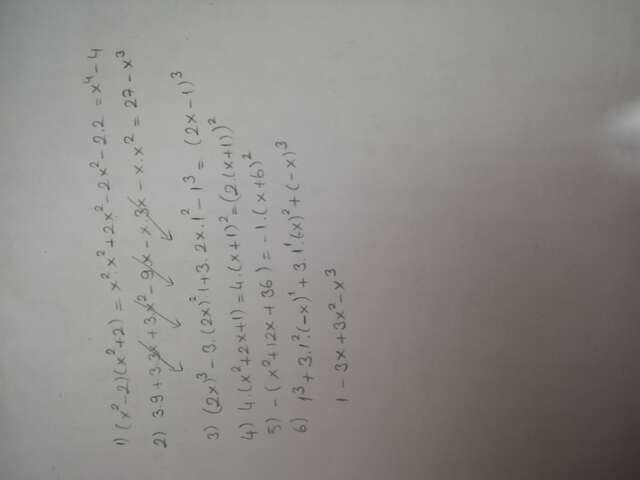 1) (x²-2)(x²+2) = x².x²+2x²-2x²-2.2 = x⁴-4
2) 3.9+3.3x+3x²-9x-x.3x-x.x² = 27-x³
3) (2x)³-3.(2x)²1+3.2x.1²-1³ = (2x-1)³
4) 4.(x²+2x+1)=4.(x+1)²=(2.(x+1))²
5) -(x²+12x+36)=-1.(x+6)²
6) 1³+3.1²(-x)¹+3.1¹(-x)²+(-x)³
1-3x+3x²-x³